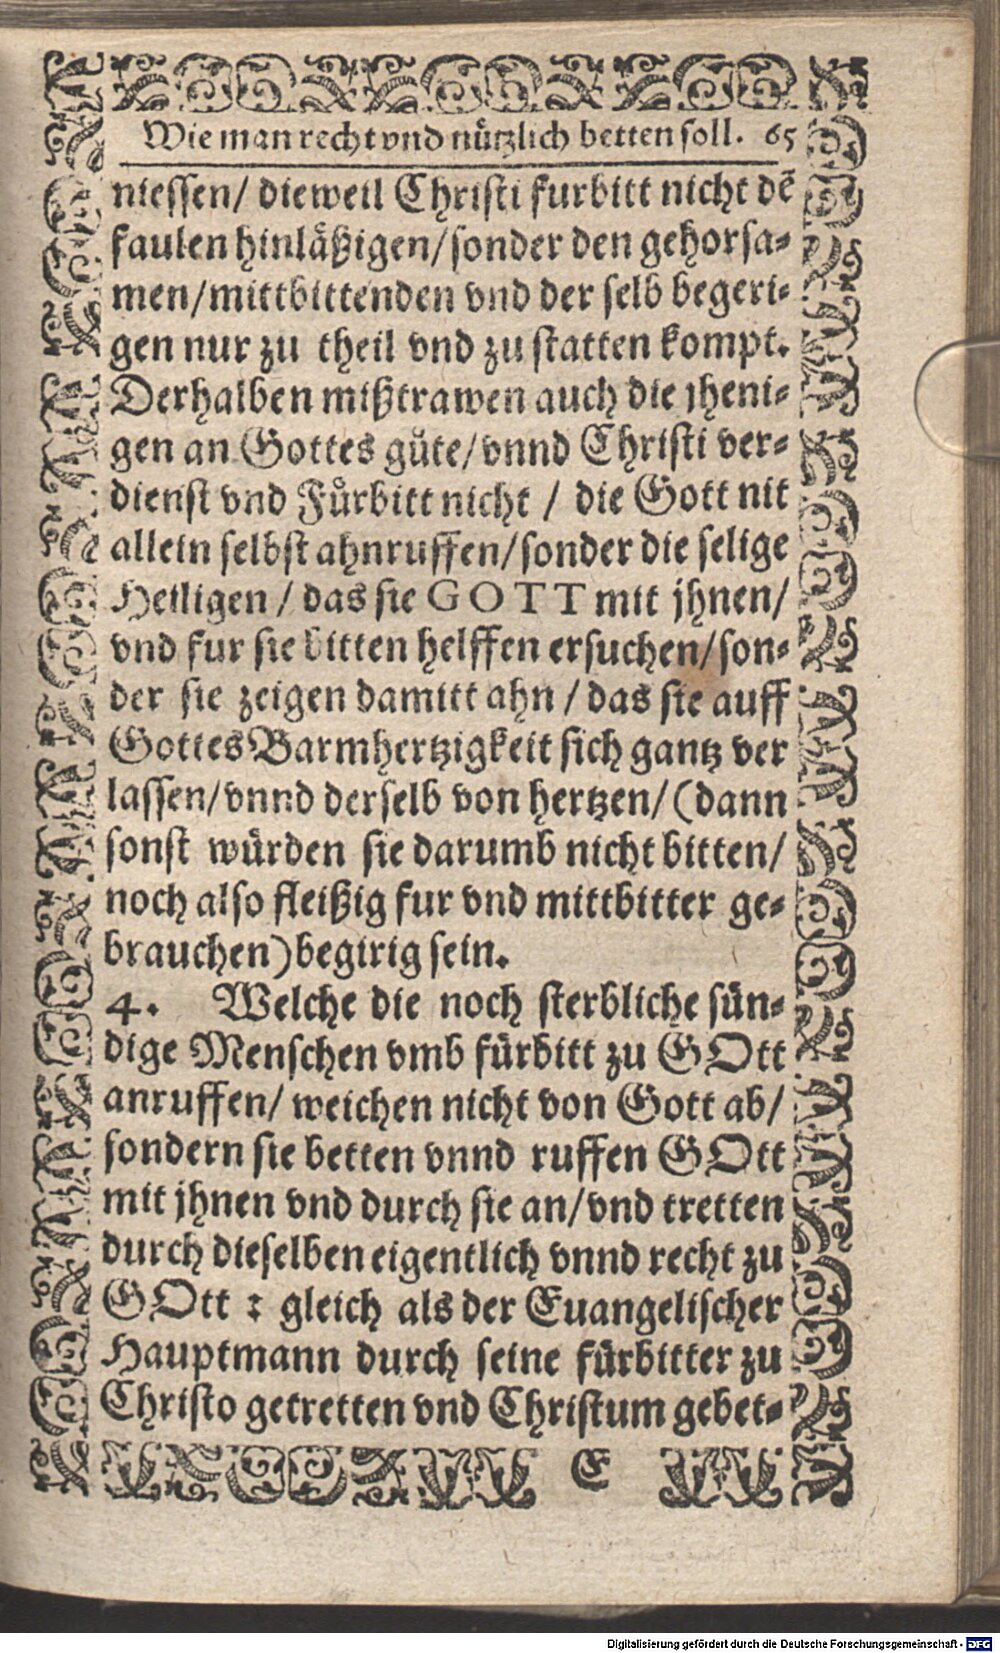 Wie man recht vnd nützlich betten soll. 65
niessen/ dieweil Christi furbitt nicht dē
faulen hinläßigen/ sonder den gehorsa-
men/ mittbittenden vnd der selb begeri-
gen nur zu theil vnd zu statten kompt.
Derhalben mißtrawen auch die jheni-
gen an Gottes gůte/ vnnd Christi ver-
dienst vnd Fůrbitt nicht / die Gott nit
allein selbst ahnruffen/ sonder die selige
Heiligen / das sie GOTT mit jhnen/
vnd fur sie bitten helffen ersuchen/ son-
der sie zeigen damitt ahn / das sie auff
Gottes Barmhertzigkeit sich gantz ver
lassen/ vnnd derselb von hertzen/ (dann
sonst würden sie darumb nicht bitten/
noch also fleißig fur vnd mittbitter ge-
brauchen) begirig sein.
4. Welche die noch sterbliche sün-
dige Menschen vmb fürbitt zu GOtt
anruffen/ weichen nicht von Gott ab/
sondern sie betten vnnd ruffen GOtt
mit jhnen vnd durch sie an/ vnd tretten
durch dieselben eigentlich vnnd recht zu
GOtt : gleich als der Euangelischer
Hauptmann durch seine fürbitter zu
Christo getretten vnd Christum gebet-
E
Digitalisierung gefördert durch die Deutsche Forschungsgemeinschaft - DFG